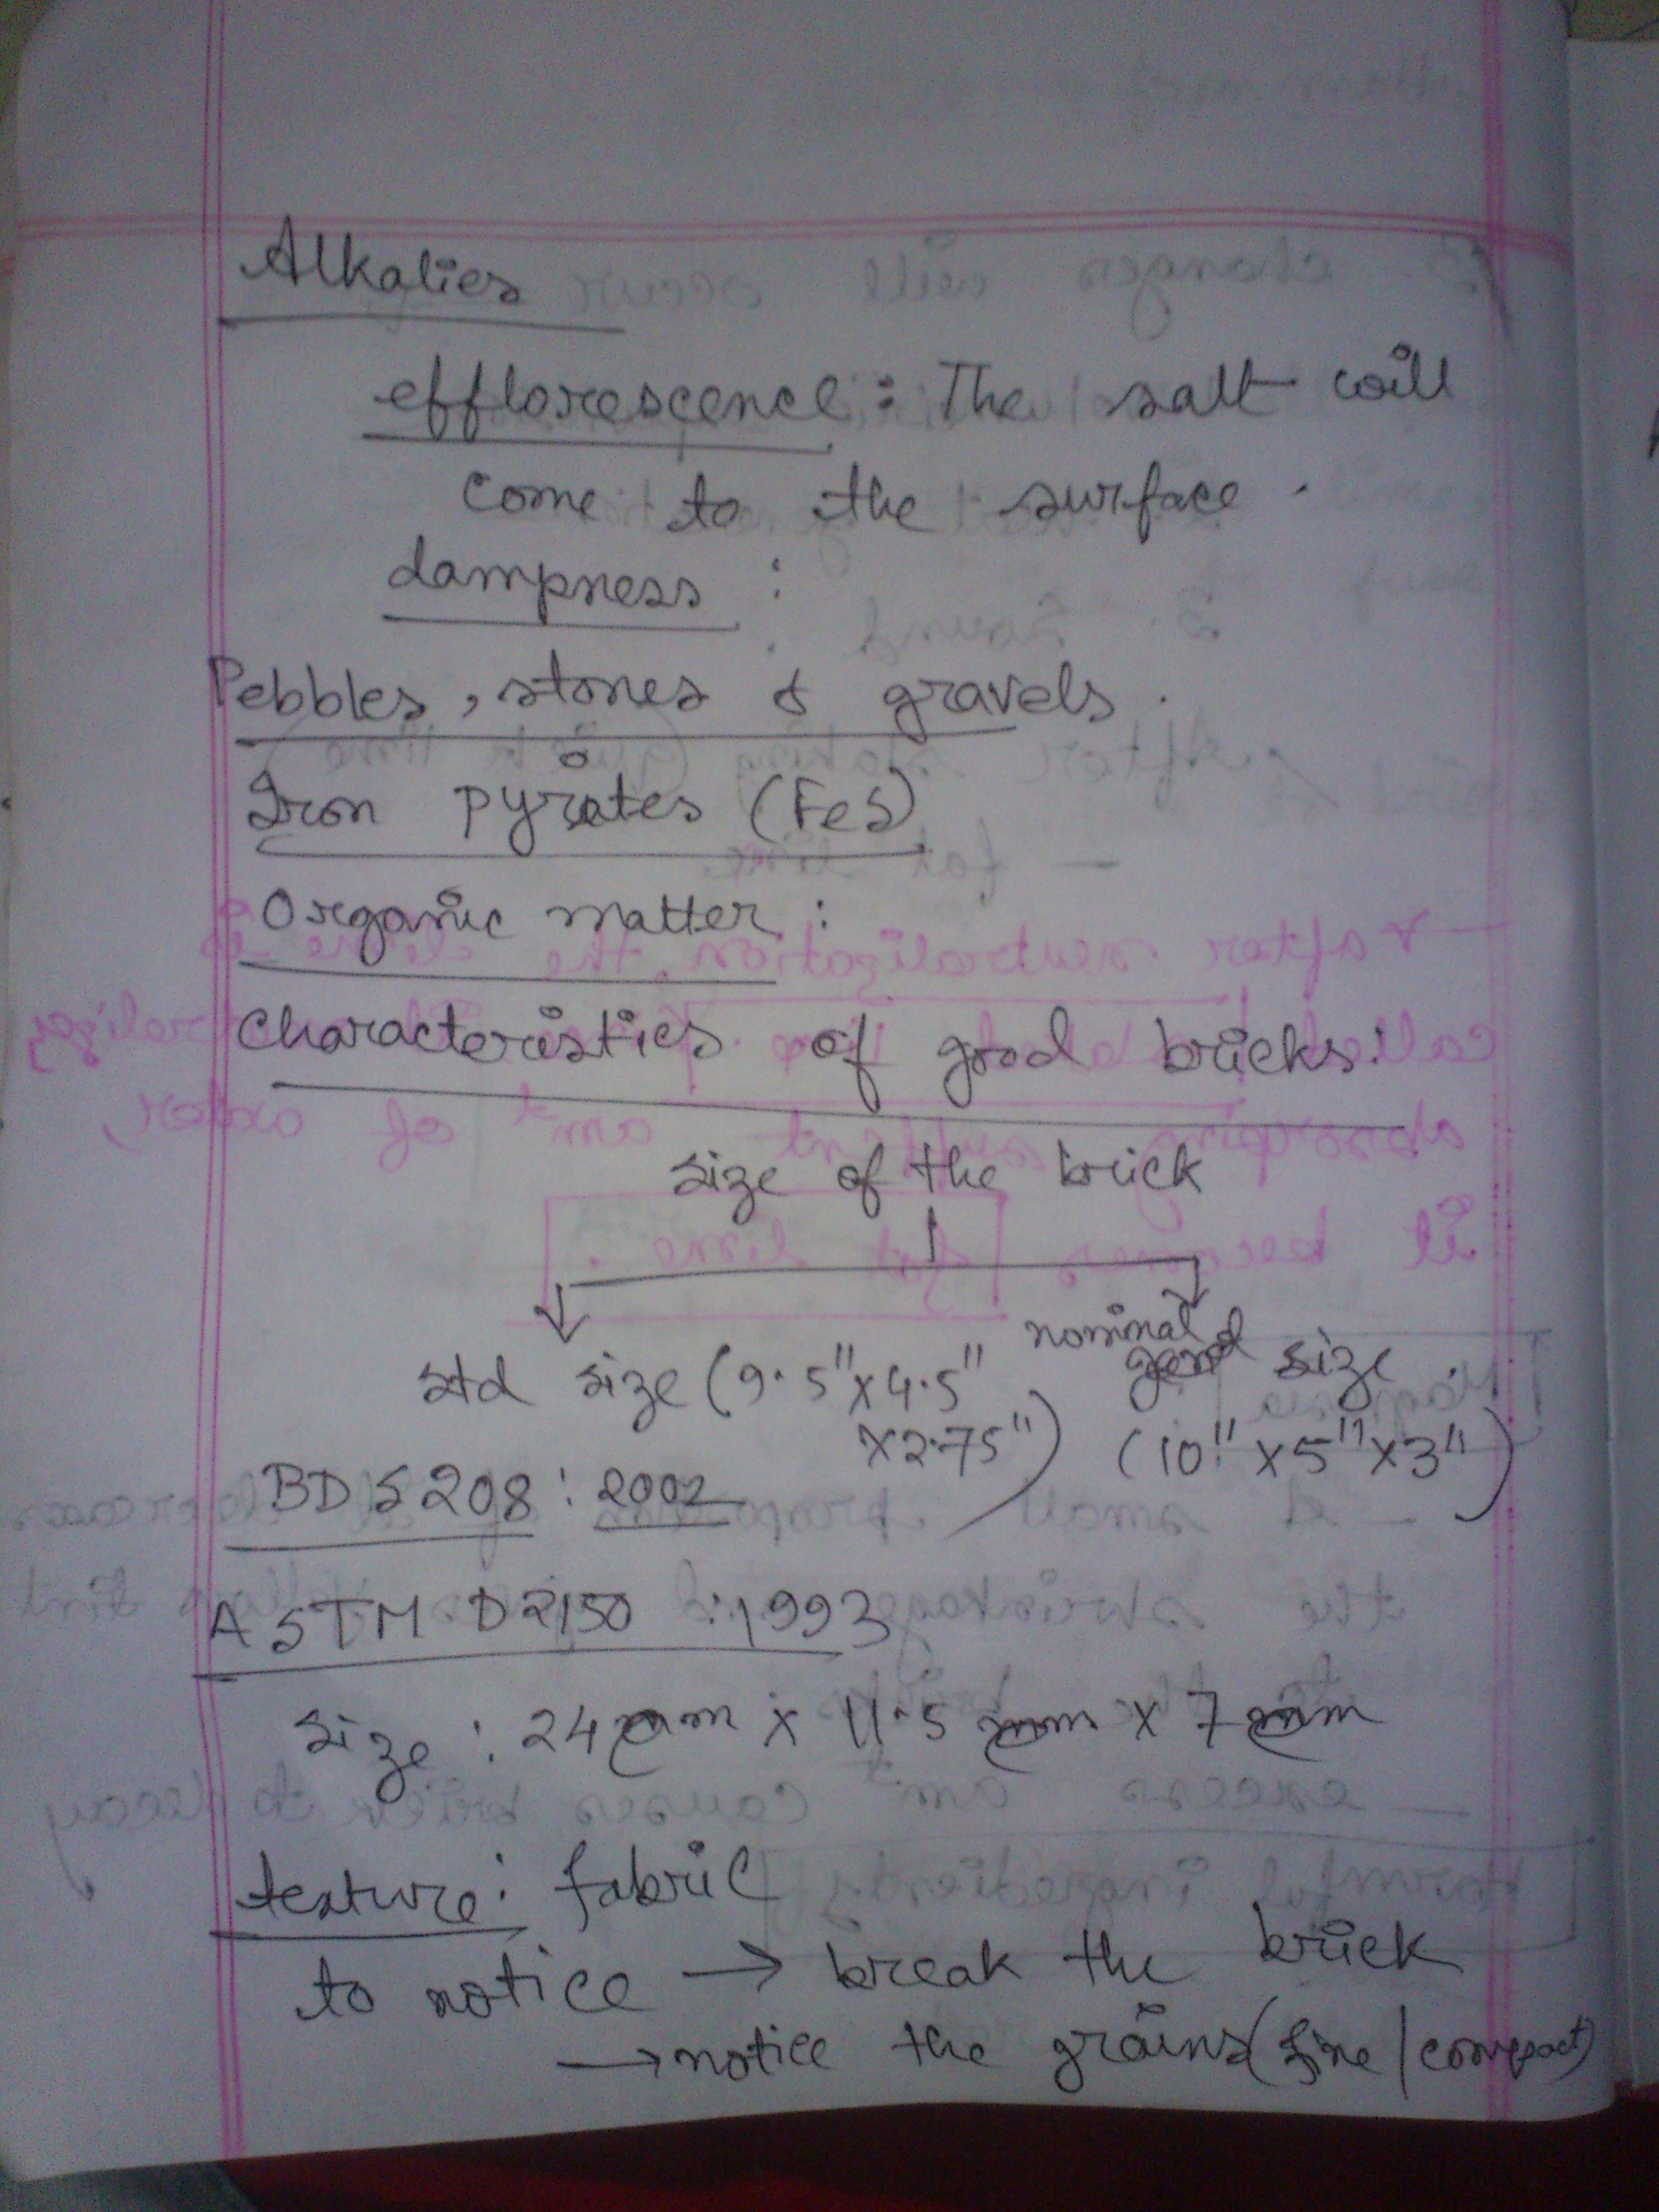 Alkalies
efflorescence: The salt will
come to the surface.
dampness :
Pebbles, stones & gravels.
Iron pyrites (FeS)
Organic matter :
Characteristics of good bricks:
size of the brick
std size (9.5"x4.5"
x2.75")
nominal
size
(10"x5"x3")
BDS 208 : 2002
ASTM D2150 :1993
size : 24 x 11.5 x 7
texture: fabric
to notice → break the brick
→ notice the grains (fine/compact)